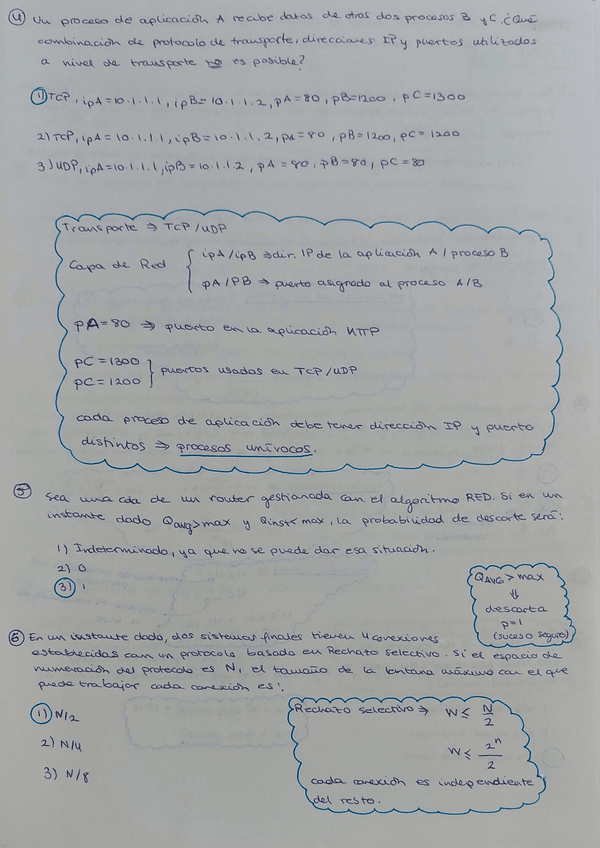 4) Un proceso de aplicación A recibe datos de otros dos procesos B y C. ¿Qué
combinación de protocolo de transporte, direcciones IP y puertos utilizados
a nivel de transporte no es posible?
1) TCP, ipA=10.1.1.1, ipB=10.1.1.2, pA=80, pB=1200, pC=1300
2) TCP, ipA=10.1.1.1, ipB=10.1.1.2, pA=80, pB=1200, pC=1200
3) UDP, ipA=10.1.1.1, ipB=10.1.1.2, pA=80, pB=80, pC=80
Transporte ⇒ TCP/UDP
Capa de Red { ipA/ipB ⇒ dir. IP de la aplicación A / proceso B
pA/PB ⇒ puerto asignado al proceso A/B
pA=80 ⇒ puerto en la aplicación HTTP
pC=1300
pC=1200 } puertos usados en TCP/UDP
cada proceso de aplicación debe tener dirección IP y puerto
distintos ⇒ procesos unívocos.
5) Sea una cola de un router gestionada con el algoritmo RED. Si en un
instante dado Qavg>max y Qinst<max, la probabilidad de descarte será:
1) Indeterminado, ya que no se puede dar esa situación.
2) 0
3) 1
QAVG > max
⇓
descarta
p=1
(suceso seguro)
6) En un instante dado, dos sistemas finales tienen 4 conexiones
establecidas con un protocolo basado en Rechazo Selectivo. Si el espacio de
numeración del protocolo es N, el tamaño de la ventana máximo con el que
puede trabajar cada conexión es:
1) N/2
2) N/4
3) N/8
Rechazo selectivo ⇒ W ≤ N/2
W ≤ 2^n/2
cada conexión es independiente
del resto.